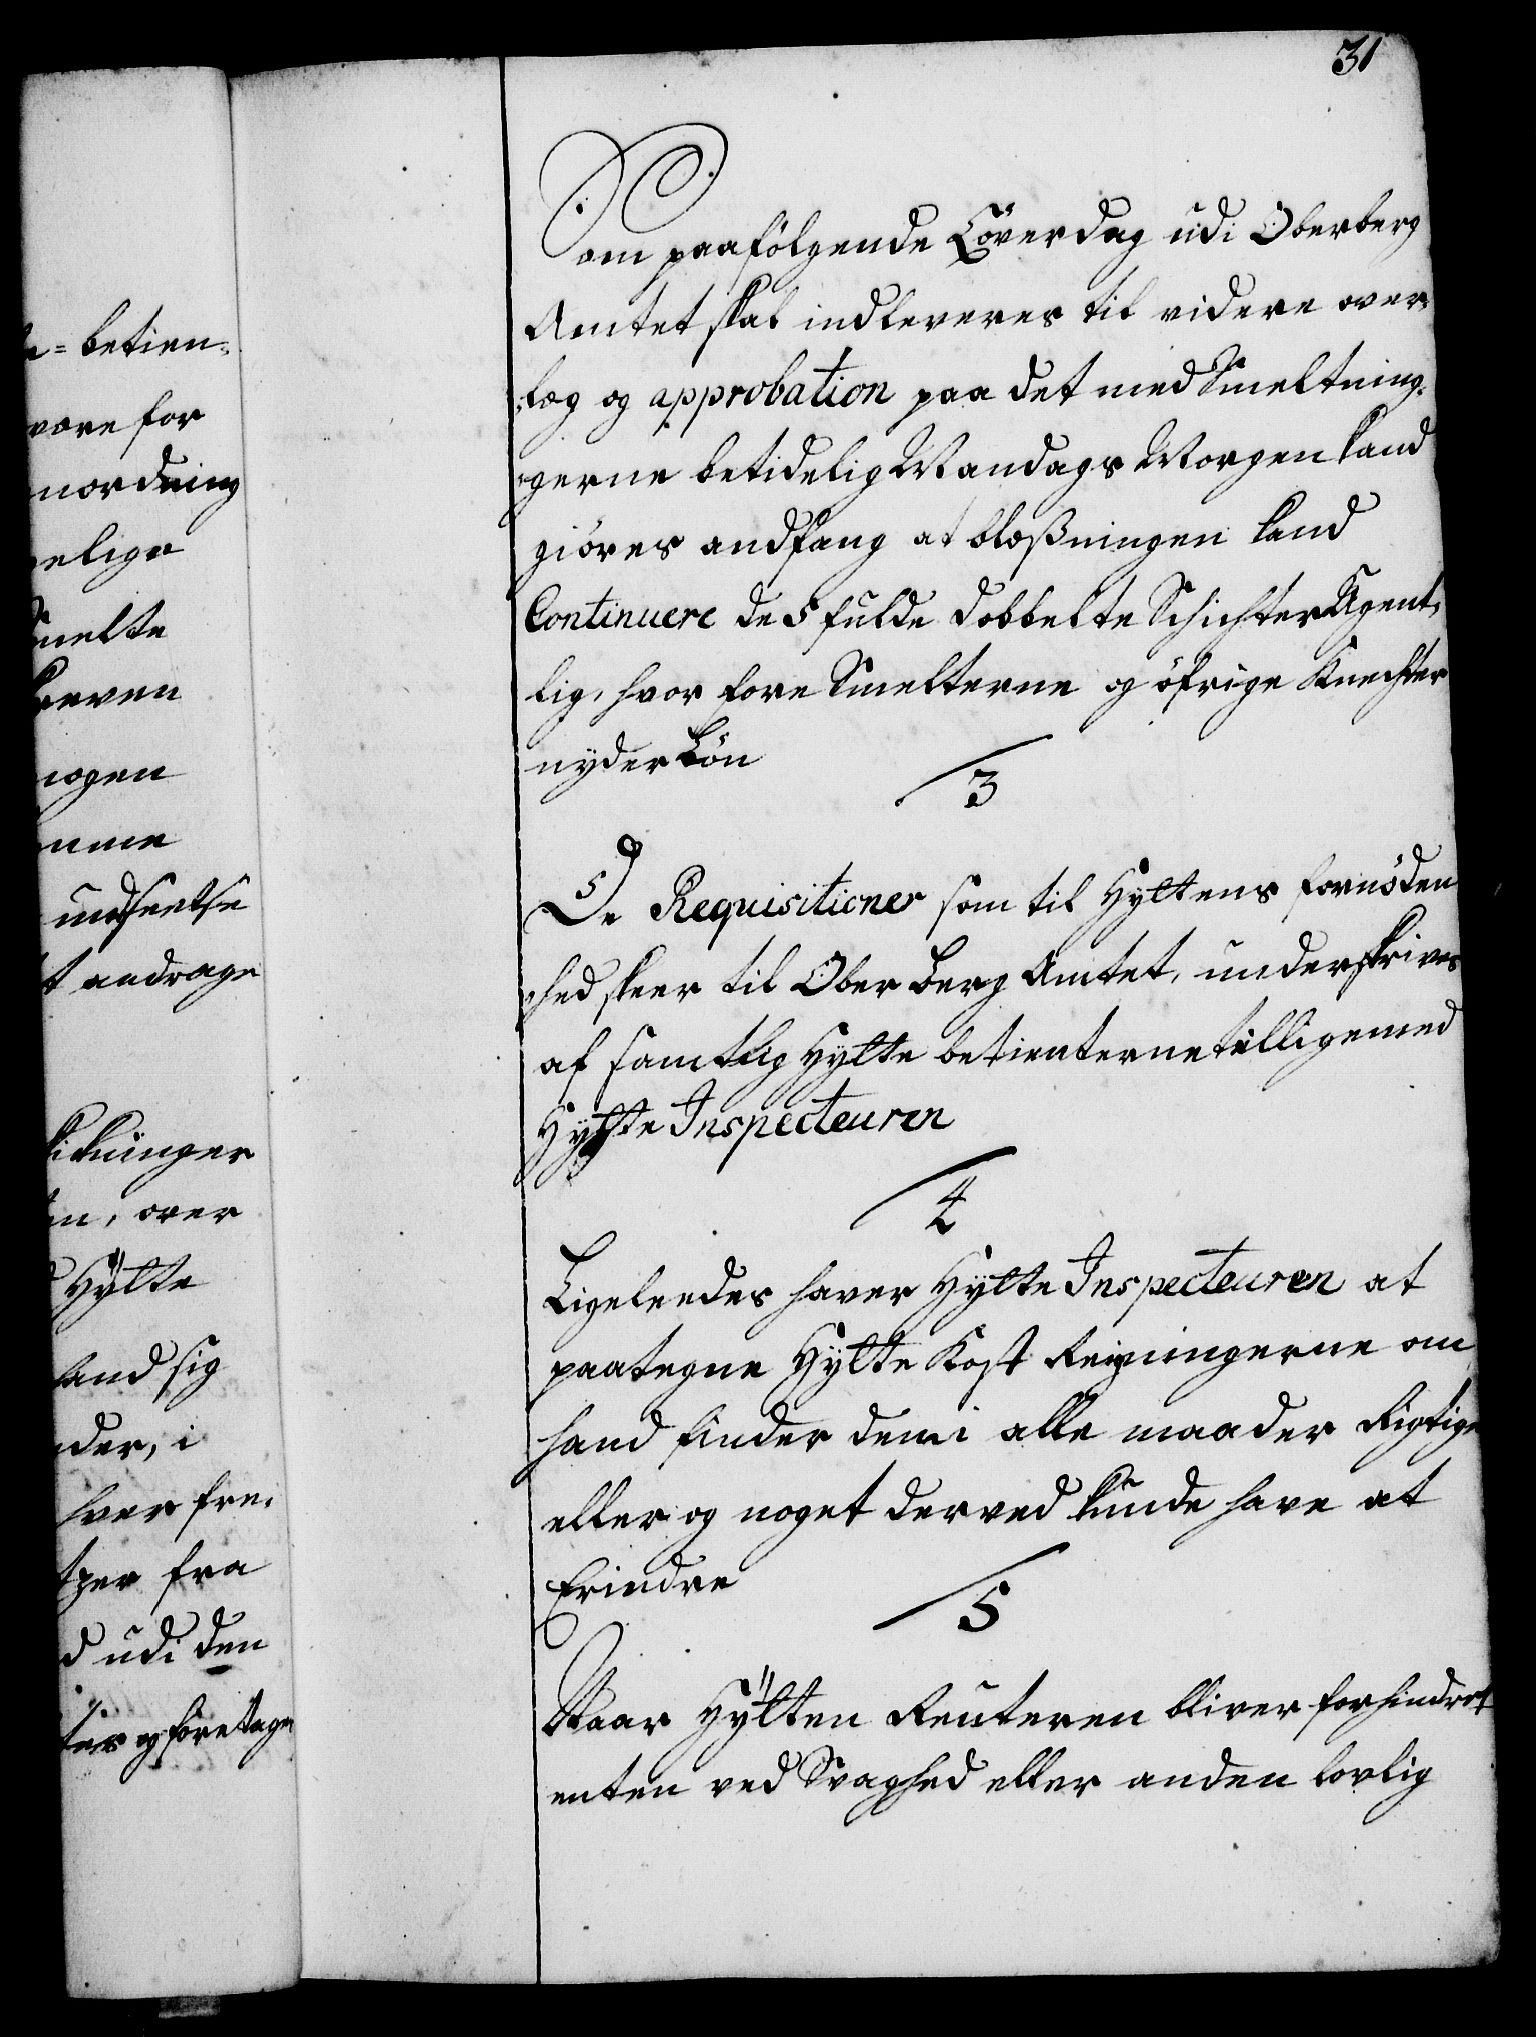 31
Som paafölgende Löverdag udi Oberberg
Amtet skal indleveres til videre over,
,læg og approbation paa det med Smeltning,
,gerne betidelig Mandags Morgen kand
giöres andfang at blæßningen kand
Continuere de 5 fulde dobbelte Schichter Egent,
lig, hvor fore Smelterne og öfrige Knechter
nyder Lön
3
De Requisitioner som til Hyttens fornöden
,hed skeer til Ober Berg Amtet, underskrives
af samtlig Hytte betienterne tilligemed
Hytte Inspecteuren
4
Ligeleedes haver Hytte Inspecteuren at
paategne Hytte Kost Reigningerne om
hand finder dem i alle maader Rigtige
eller og noget derved kunde have at
Erindre
5
Naar Hÿtten Reuteren bliver forhindret
enten ved Svaghed eller anden lovlig
= betien,
være for
nordning
elige
melte
nogen
mme
undseelse
t andrage
over
Hÿtte
and sig
der, i
hver fre,
tzer fra
d udi den
og foretage